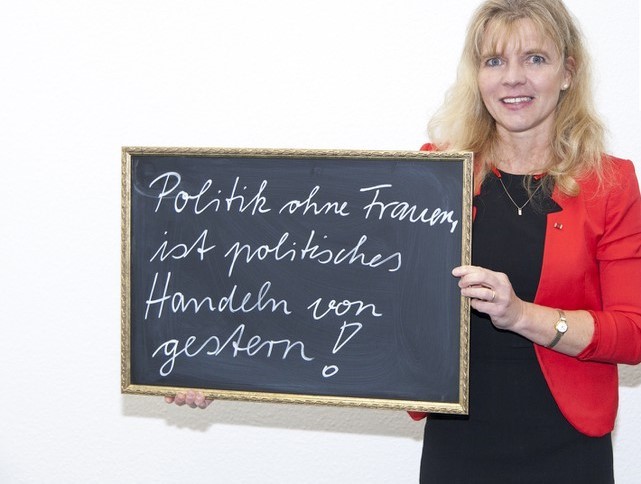 Politik ohne Frauen,
ist politisches
Handeln von
gestern!